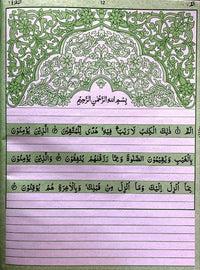 12
بِسْمِ اللهِ الرَّحْمٰنِ الرَّحِيْمِ
الٓمّٓ ذٰلِكَ الْكِتٰبُ لَا رَيْبَ فِيْهِ هُدًى لِّلْمُتَّقِيْنَ الَّذِيْنَ يُؤْمِنُوْنَ
بِالْغَيْبِ وَيُقِيْمُوْنَ الصَّلٰوةَ وَمِمَّا رَزَقْنٰهُمْ يُنْفِقُوْنَ وَالَّذِيْنَ يُؤْمِنُوْنَ
بِمَآ اُنْزِلَ اِلَيْكَ وَمَآ اُنْزِلَ مِنْ قَبْلِكَ وَبِالْاٰخِرَةِ هُمْ يُوْقِنُوْنَ